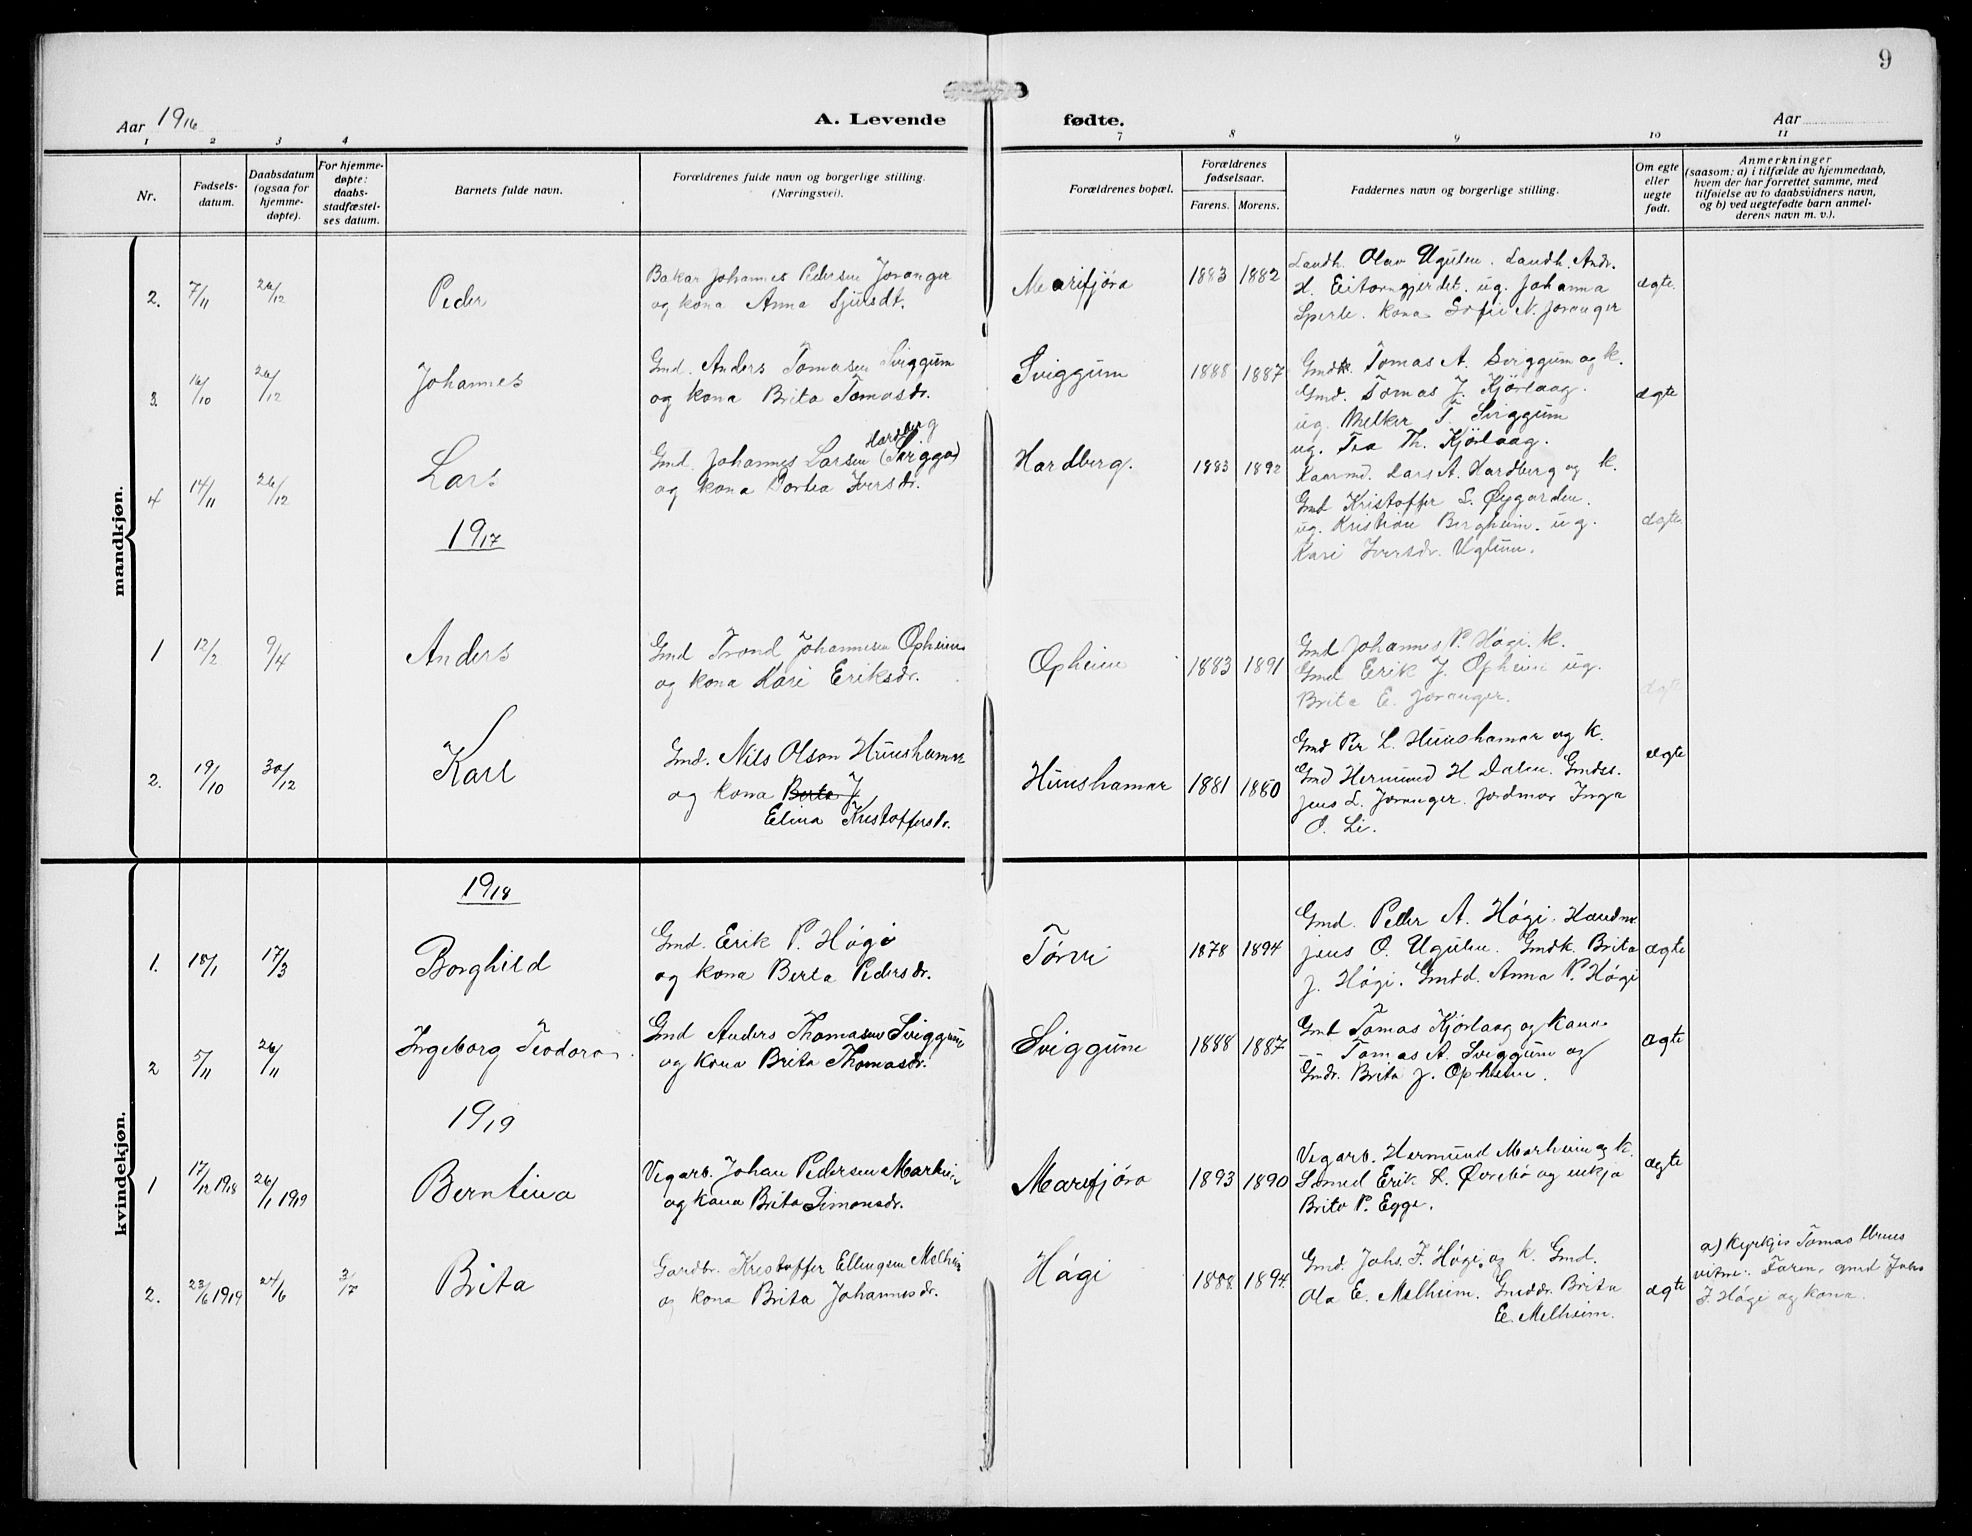 9
Aar 1916
A. Levende fødte.
Aar
1 2 3 4 7 8 9 10 11
Nr.
Fødsels-
datum.
Daabsdatum
(ogsaa for
hjemme-
døpte).
For hjemme-
døpte:
daabs-
stadfæstel-
ses datum.
Barnets fulde navn.
Forældrenes fulde navn og borgerlige stilling.
(Næringsvei).
Forældrenes bopæl.
Forældrenes
fødselsaar.
Farens. Morens.
Faddernes navn og borgerlige stilling.
Om egte
eller
uegte
født.
Anmerkninger
(saasom: a) i tilfælde av hjemmedaab,
hvem der har forrettet samme, med
tilføielse av to daabsvidners navn,
og b) ved uegtefødte barn anmel-
derens navn m. v.).
mandkjøn.
2. 7/11 26/12 Peder
Bakar Johannes Pedersen Joranger
og kona Anna Sjursdt.
Marifjøra 1883 1882
Landh. Olav Ugulen. Landh. Andr.
H. Eitorngjerdet. ug. Johanna
Sperle. kona Sofie N. Joranger
ægte.
3. 16/10 26/12 Johannes
Gmd. Anders Tomasen Sviggum
og kona Brita Tomasdr.
Sviggum 1888 1887
Gmdk. Tomas A. Sviggum og k.
Gmd. Tomas J. Kjørlaug.
ug. Melker T. Sviggum
ug. Tea Th. Kjørlaug.
ægte
4 14/11 26/12 Lars
Hardberg
Gmd. Johannes Larsen
og kona Dortea Iversdr.
Hardberg. 1883 1892
Kaarmd. Lars A. Hardberg og k.
Gmd Kristoffer L. Øygarden.
ug. Kristian Bergheim. ug.
Kari Iversdr. Uglum.
ægte.
1917
1 12/2 9/4 Anders
Gmd Trond Johannesen Opheim
og kona Kari Eriksdr.
Opheim 1883 1891
Gmd Johannes P. Høgi. k.
Gmd Erik J. Opheim ug.
Brita E. Joranger.
ægte
2. 19/10 30/12 Karl
Gmd. Nils Olson Hunshamar
og kona Berta J
Elina Kristoffersdr.
Hunshamar 1881 1880
Gmd Per L. Hunshamar og k.
Gmd Hermund H Dalen. Gmdss.
Jens L. Joranger. Jordmor Inga
O. Li.
ægte
kvindekjøn.
1918
1. 18/1 17/3 Borghild
Gmd. Erik P. Høgi
og kona Berta Pedersdr.
Tørvi 1878 1894
Gmd. Peder A. Høgi. Handm.
Jens O. Ugulen. Gmdk. Brita
J. Høgi. Gmdd. Anna P. Høgi
ægte
2 5/11 26/11 Ingeborg Teodora
Gmd Anders Thomasen Sviggum
og kona Brita Thomasdr.
Sviggum 1888 1887
Gmd Tomas Kjørlaug og kona
— Tomas A. Sviggum og
Gmdr. Brita J. Opheim.
ægte
1919
1 17/12 1918 26/1 1919 Berntina
Vegarb. Johan Pedersen Marheim
og kona Brita Simonsdr.
Marifjøra 1893 1890
Vegarb. Hermund Marheim og k.
Smed Erik L. Øvrebø og enkja
Brita P. Egge.
ægte
2. 23/6 1919 24/6 3/7 Brita
Gardbr. Kristoffer Ellingsen Melheim
og kona Brita Johannesdr.
Høgi 1888 1894
Gmd. Johs. F. Høgi og k. Gmd.
Ola E. Melheim. Gmddr. Brita
E. Melheim.
ægte
a) Kyrkjes. Tomas
vitne: Faren, gmd Johs
F. Høgi og kona.